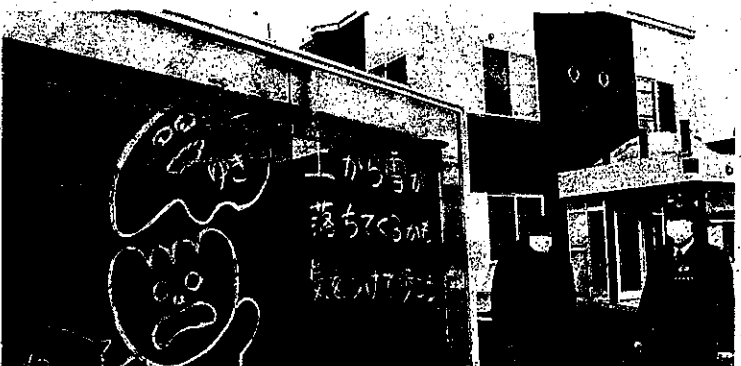 ゆき
上から雪が
落ちてくるかも
気をつけて歩こう